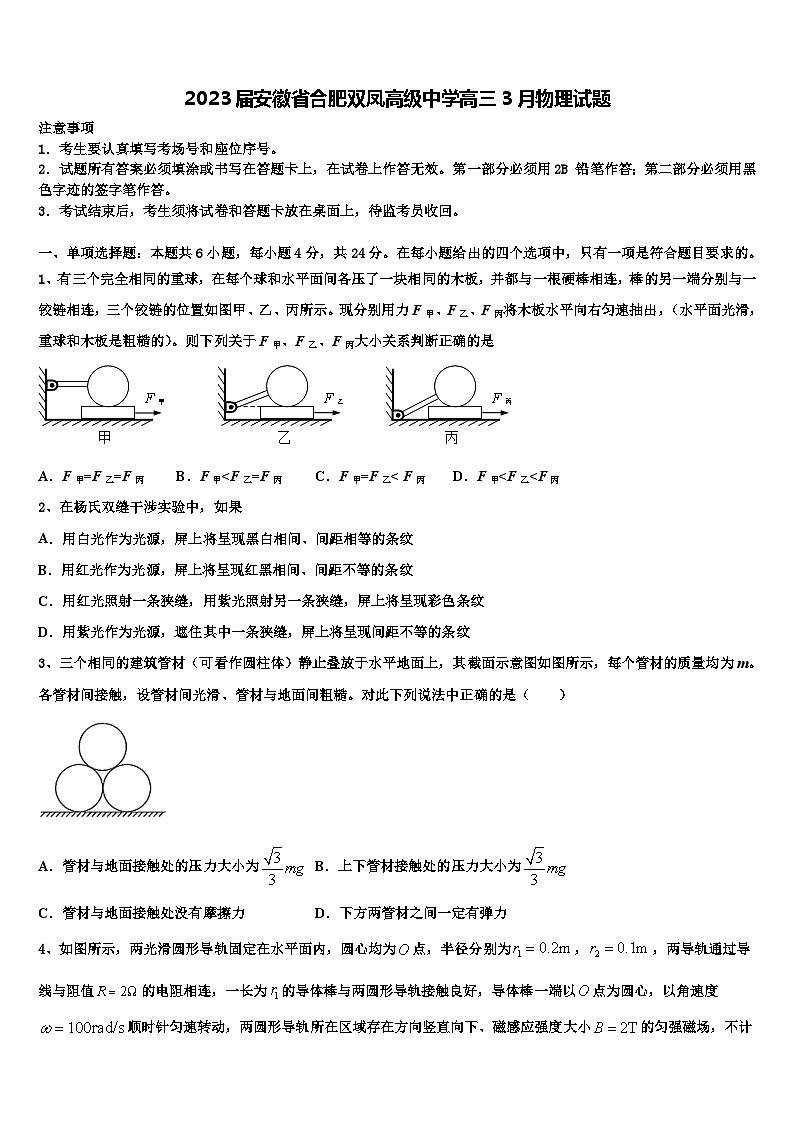 2023届安徽省合肥双凤高级中学高三3月物理试题
注意事项
1．考生要认真填写考场号和座位序号。
2．试题所有答案必须填涂或书写在答题卡上，在试卷上作答无效。第一部分必须用2B 铅笔作答；第二部分必须用黑
色字迹的签字笔作答。
3．考试结束后，考生须将试卷和答题卡放在桌面上，待监考员收回。
一、单项选择题：本题共6小题，每小题4分，共24分。在每小题给出的四个选项中，只有一项是符合题目要求的。
1、有三个完全相同的重球，在每个球和水平面间各压了一块相同的木板，并都与一根硬棒相连，棒的另一端分别与一
铰链相连，三个铰链的位置如图甲、乙、丙所示。现分别用力F甲、F乙、F丙将木板水平向右匀速抽出，（水平面光滑，
重球和木板是粗糙的）。则下列关于F甲、F乙、F丙大小关系判断正确的是
F甲 F乙 F丙
甲 乙 丙
A．F甲=F乙=F丙 B．F甲<F乙=F丙 C．F甲=F乙< F丙 D．F甲<F乙<F丙
2、在杨氏双缝干涉实验中，如果
A．用白光作为光源，屏上将呈现黑白相间、间距相等的条纹
B．用红光作为光源，屏上将呈现红黑相间、间距不等的条纹
C．用红光照射一条狭缝，用紫光照射另一条狭缝，屏上将呈现彩色条纹
D．用紫光作为光源，遮住其中一条狭缝，屏上将呈现间距不等的条纹
3、三个相同的建筑管材（可看作圆柱体）静止叠放于水平地面上，其截面示意图如图所示，每个管材的质量均为m。
各管材间接触，设管材间光滑、管材与地面间粗糙。对此下列说法中正确的是（ ）
A．管材与地面接触处的压力大小为√3/3 mg B．上下管材接触处的压力大小为√3/3 mg
C．管材与地面接触处没有摩擦力 D．下方两管材之间一定有弹力
4、如图所示，两光滑圆形导轨固定在水平面内，圆心均为O点，半径分别为r₁=0.2m，r₂=0.1m，两导轨通过导
线与阻值R=2Ω的电阻相连，一长为r₁的导体棒与两圆形导轨接触良好，导体棒一端以O点为圆心，以角速度
ω=100rad/s顺时针匀速转动，两圆形导轨所在区域存在方向竖直向下、磁感应强度大小B=2T的匀强磁场，不计